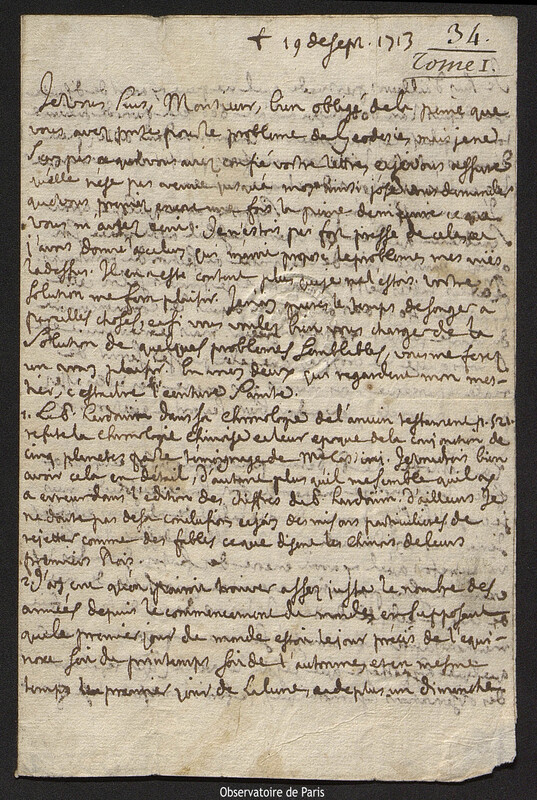 + 19 de sept. 1713
34.
Tome I.
Je vous suis, Monsieur, bien obligé de la peine que
vous avez prise pour le probleme de Geodesie, mais je ne
sçay pas a qui vous avez confié votre lettre, et je vous assure
qu'elle n'est pas venue jusqu'a moy. ainsi j'ose vous demander
que vous preniez encore une fois la peine
vous m'aviez ecrit. Je n'estois pas fort pressé de cela, et
j'avois donné a celuy qui m'avoit proposé le probleme mes vues
la dessus. Il en est resté content, plus que je n'al estois. votre
solution me fera plaisir. Je n'ay gueres le temps de songer a
pareilles choses, et si vous voulez bien vous charger de la
solution de quelques problemes semblables, vous me ferez
un vray plaisir. En voici deux qui regardent mon mes-
tier, c'est a dire l'ecriture Sainte.
1. Le P. Hardouin dans sa Chronologie de l'ancien testament p. 521.
refute la Chronologie Chinoise et leur epoque de la conjonction de
cinq planetes par le temoignage de Mr Cassini. Je voudrois bien
avoir cela en détail, d'autant plus qu'il me semble qu'il y a
erreur dans l'edition des chiffres du P. Hardouin. D'ailleurs Je
ne doute pas de sa conclusion et j'ay des raisons particulieres de
rejetter comme des fables ce que disent les Chinois de leurs
premiers Rois.
2. J'ay cru qu'on pouvoit trouver assez juste le nombre des
années depuis le commencement du monde, en supposant
que le premier jour du monde estoit le jour precis de l'equi-
noxe soit du printemps soit de l'automne, et en mesme
temps le premier jour de la lune, et de plus un dimanche
Observatoire de Paris